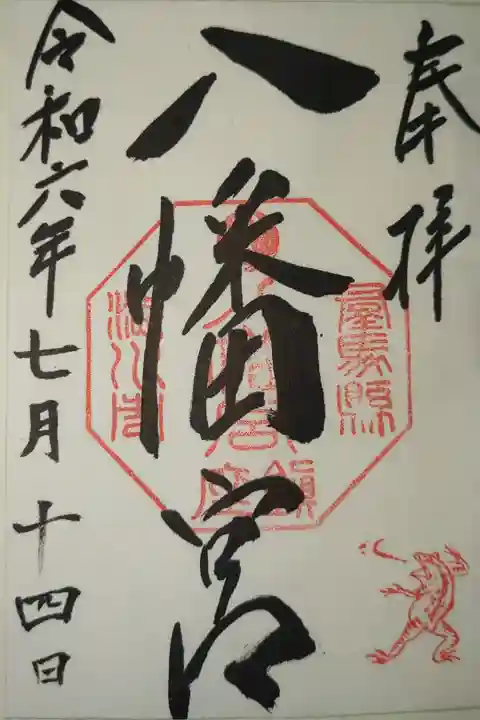 奉拝
八幡宮
令和六年七月十四日